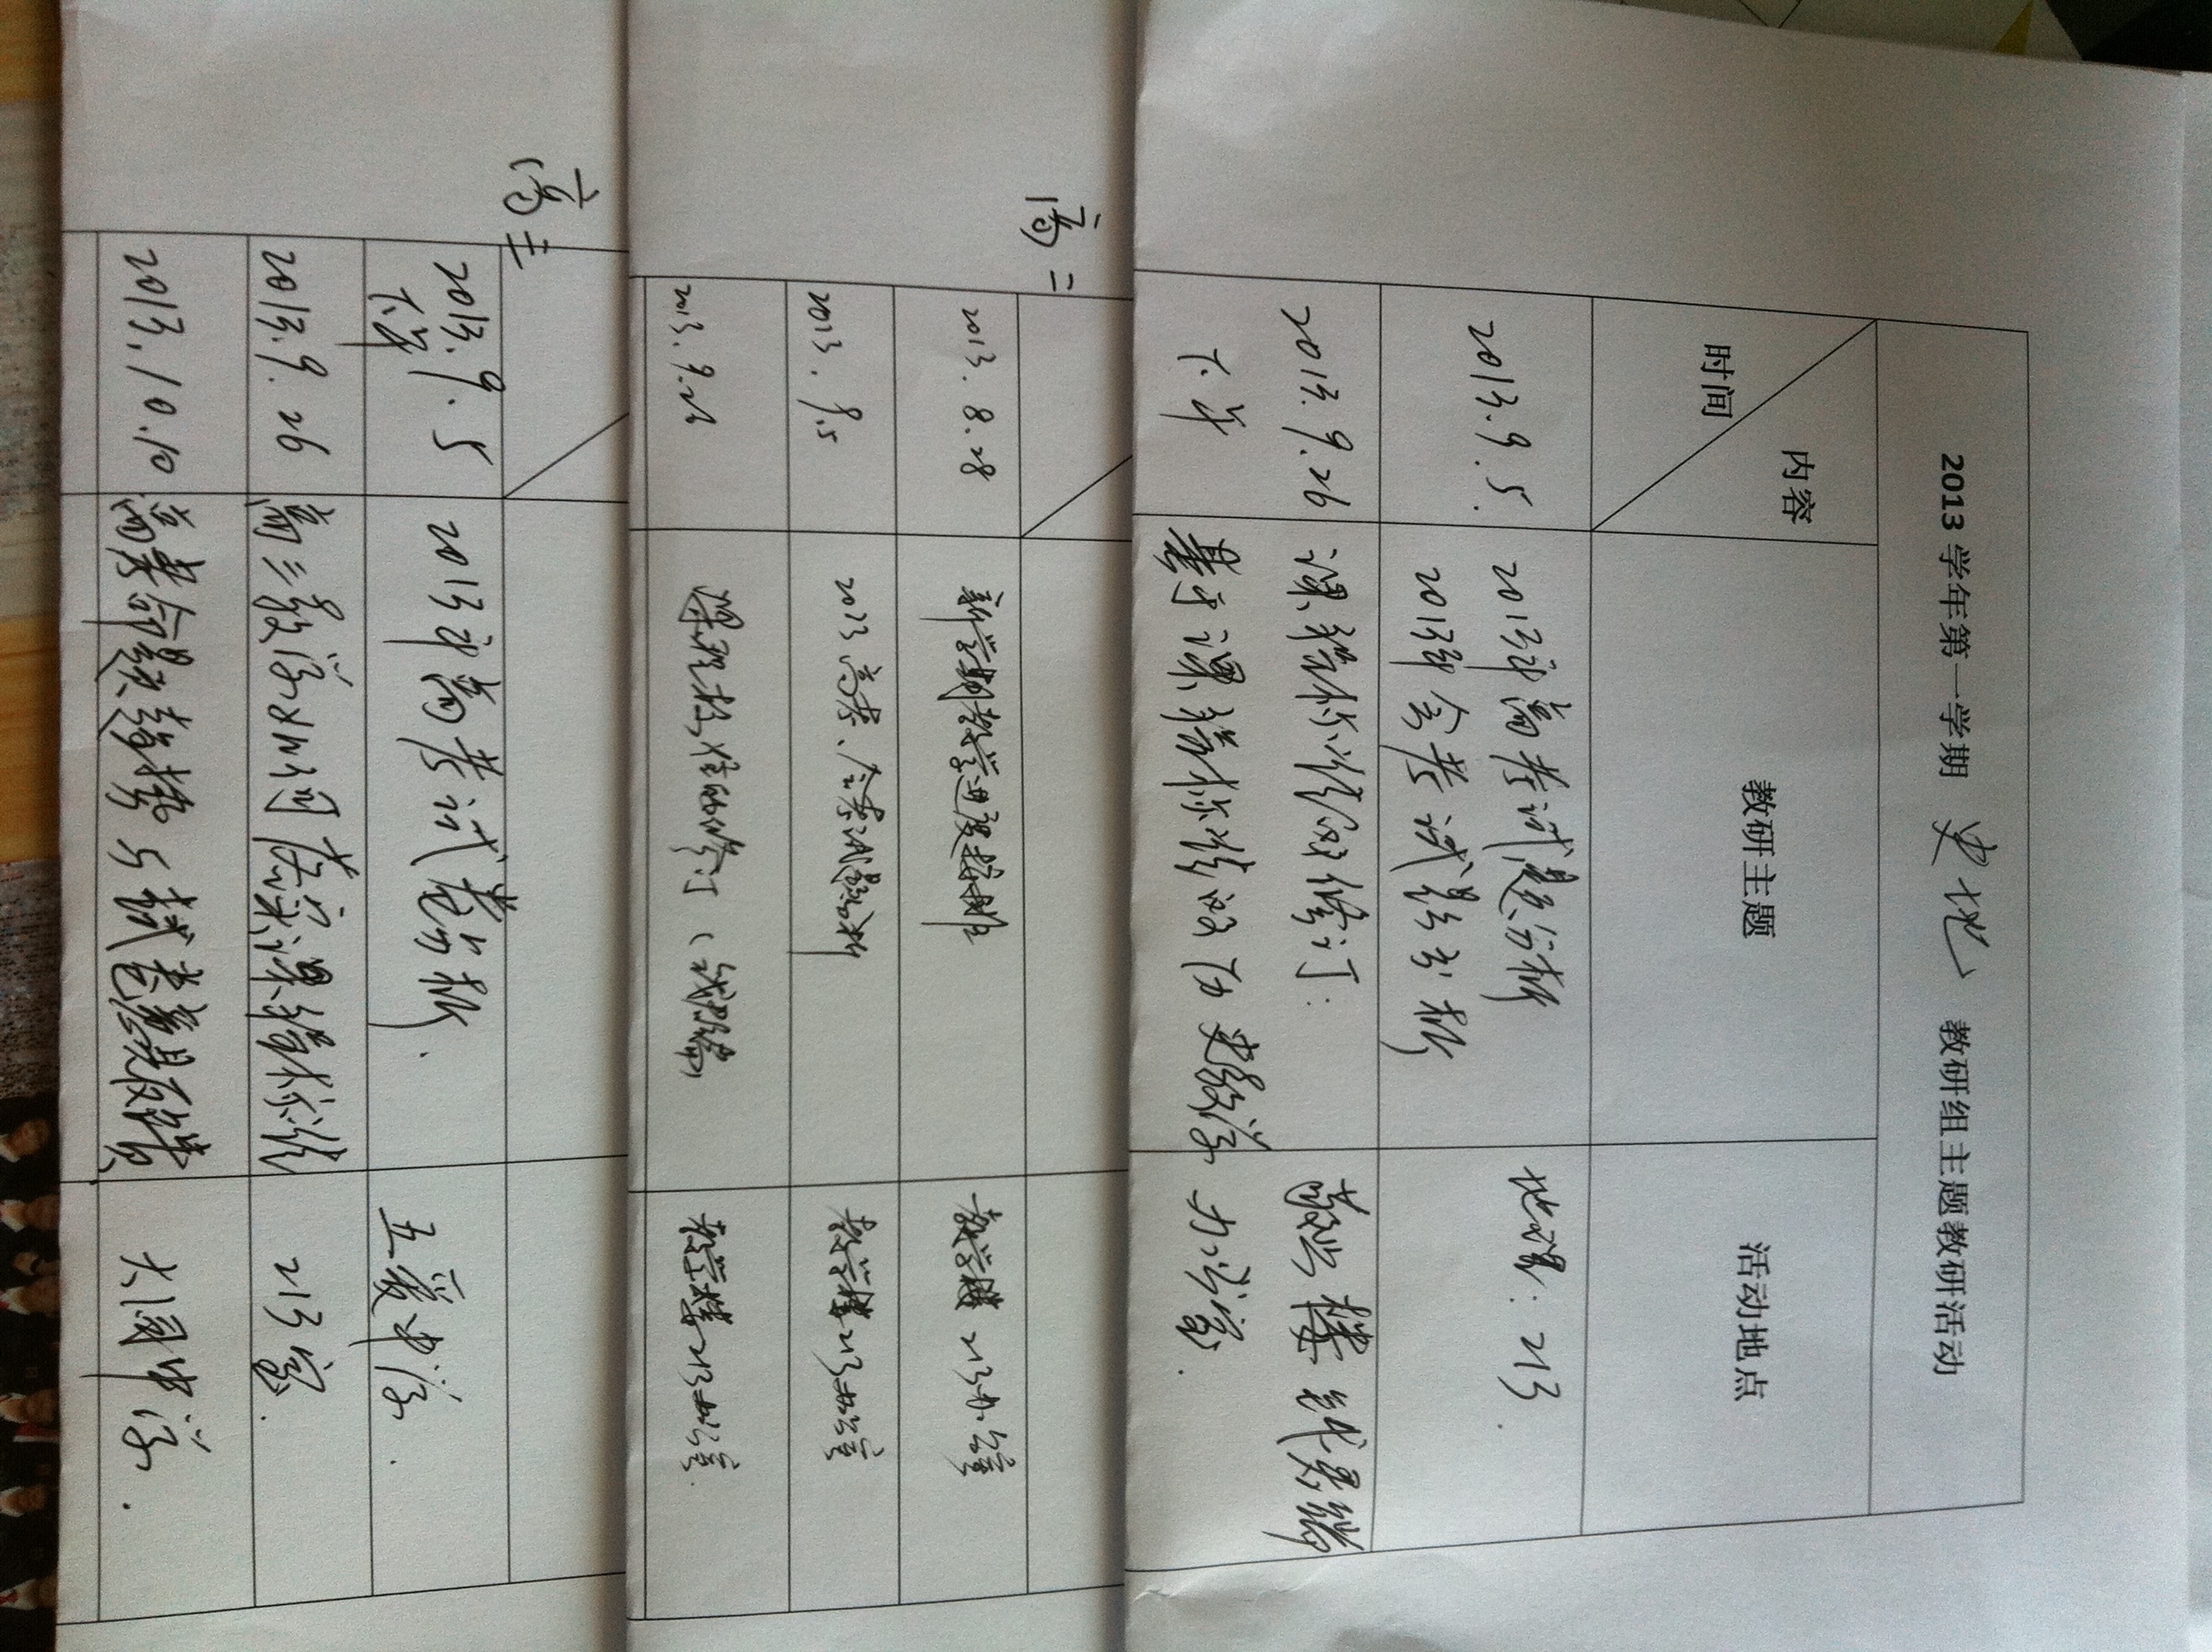 2013 学年第一学期 史地 教研组主题教研活动
内容
时间
教研主题
活动地点
2013.9.5.
2013年高考试题分析
2013年会考试题分析
地理:213.
2013.9.26
下午
课程标准的修订:
基于课程标准的历史教学
办公室.
高二
2013.8.28
新学期教学进度安排
教学楼213办公室
2013.9.5
2013高考、会考试题分析
教学楼213办公室
2013.9.26
课程标准的修订
教学楼213办公室.
高三
2013.9.5
下午
2013年高考试卷分析.
五爱中学.
2013.9.26
高三教学如何落实课程标准
213室.
2013.10.10
高考命题趋势与试卷
大同中学.